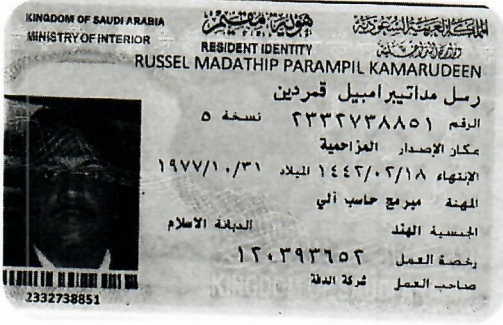 KINGDOM OF SAUDI ARABIA
MINISTRY OF INTERIOR
هوية مقيم
RESIDENT IDENTITY
المملكة العربية السعودية
وزارة الداخلية
RUSSEL MADATHIP PARAMPIL KAMARUDEEN
رسل مداتيبرامبيل قمردين
الرقم ٢٣٣٢٧٣٨٨٥١ نسخة ٥
مكان الإصدار المزاحمية
الإنتهاء ١٤٤٢/٠٢/١٨ الميلاد ١٩٧٧/١٠/٣١
المهنة مبرمج حاسب آلي
الجنسية الهند الديانة الاسلام
رخصة العمل ١٢٠٣٩٣٦٥٢
صاحب العمل شركة الدقة
2332738851